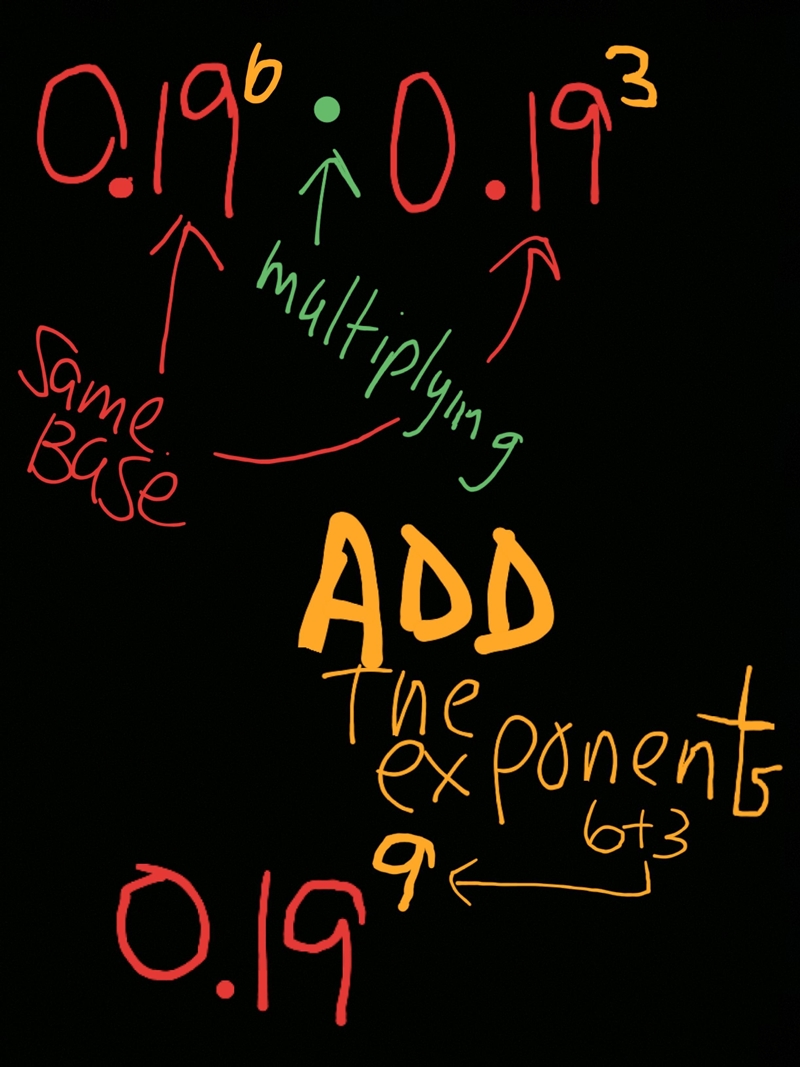 0.19⁶ · 0.19³
multiplying
Same
Base
ADD
The
exponents
6+3
0.19⁹